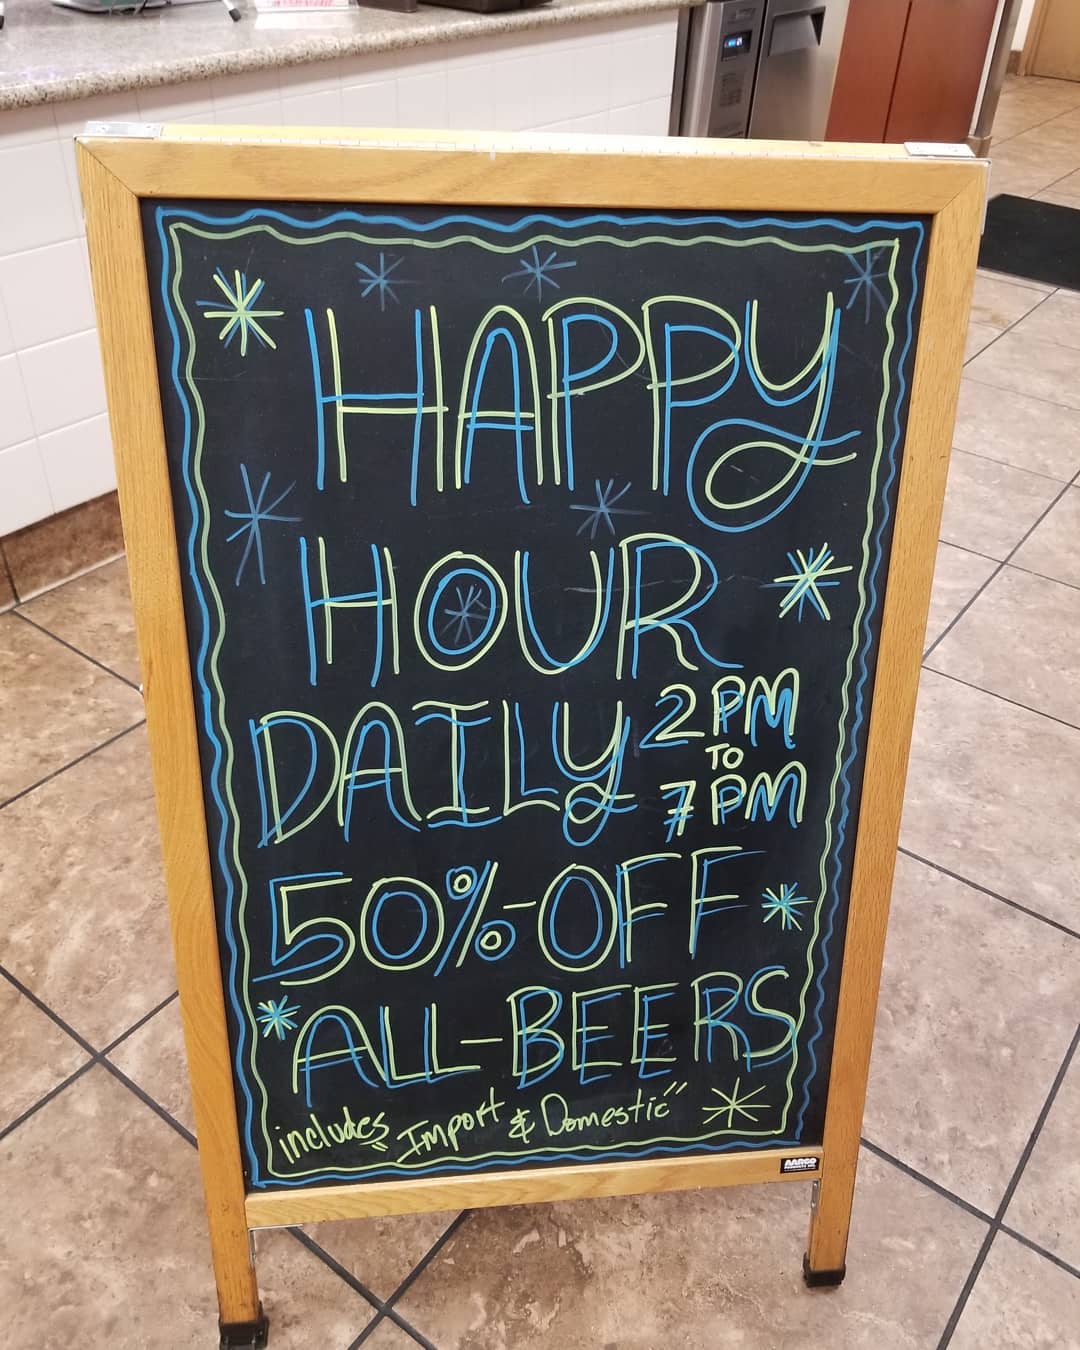 HAPPY
HOUR
DAILY 2 PM
TO
7 PM
50%-OFF
ALL-BEERS
includes "Import & Domestic"
AARCO